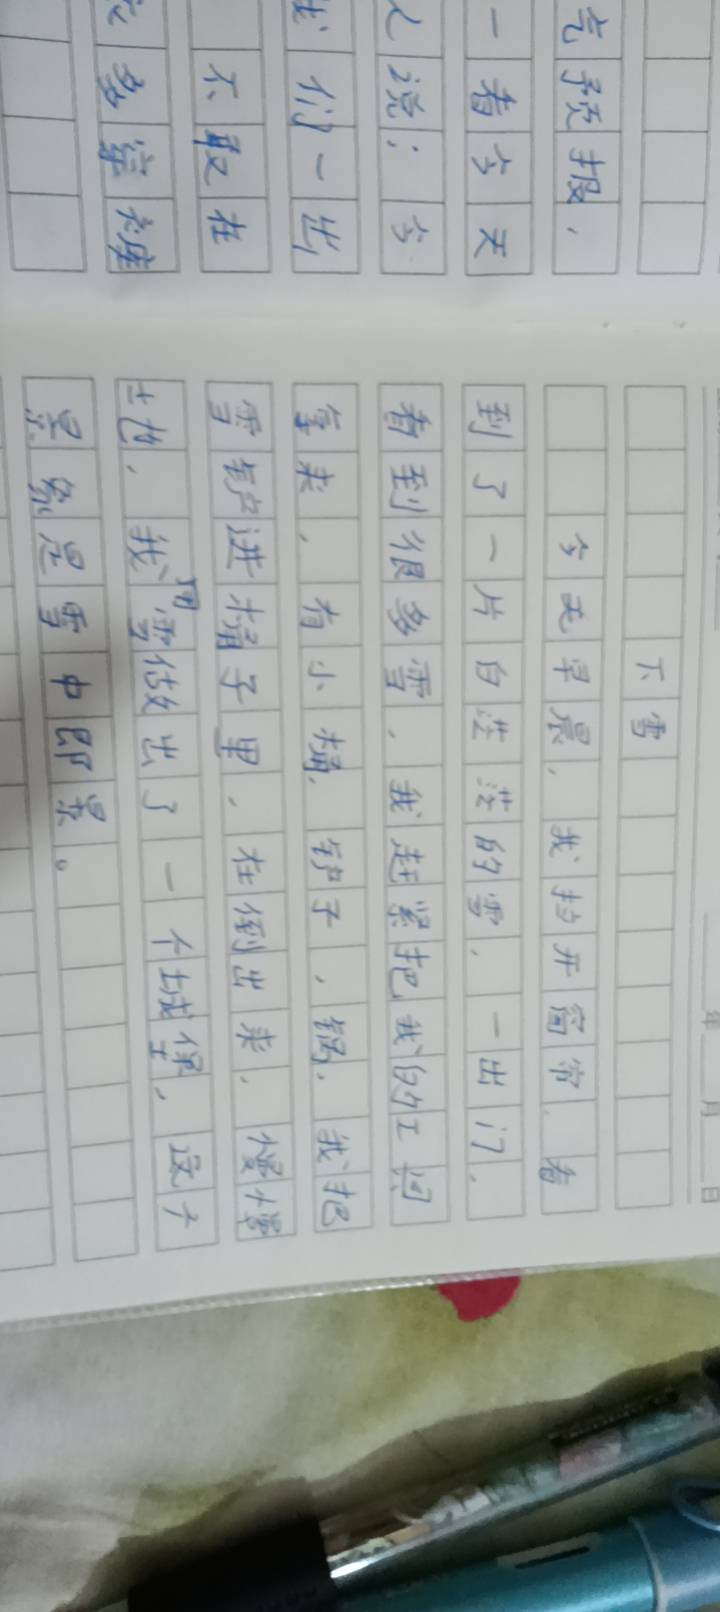 气预报，
一看今天
人说：今
我们一出
不敢在
多穿衣座
年 月 日
下雪
今天早晨，我拉开窗帘，看
到了一片白茫茫的雪，一出门，
看到很多雪，我赶紧把我的工具
拿来，有小桶，铲子，锅，我把
雪铲进桶子里，在倒出来，慢慢
地，我用雪做出了一个城堡，这个
景象是雪中即景。